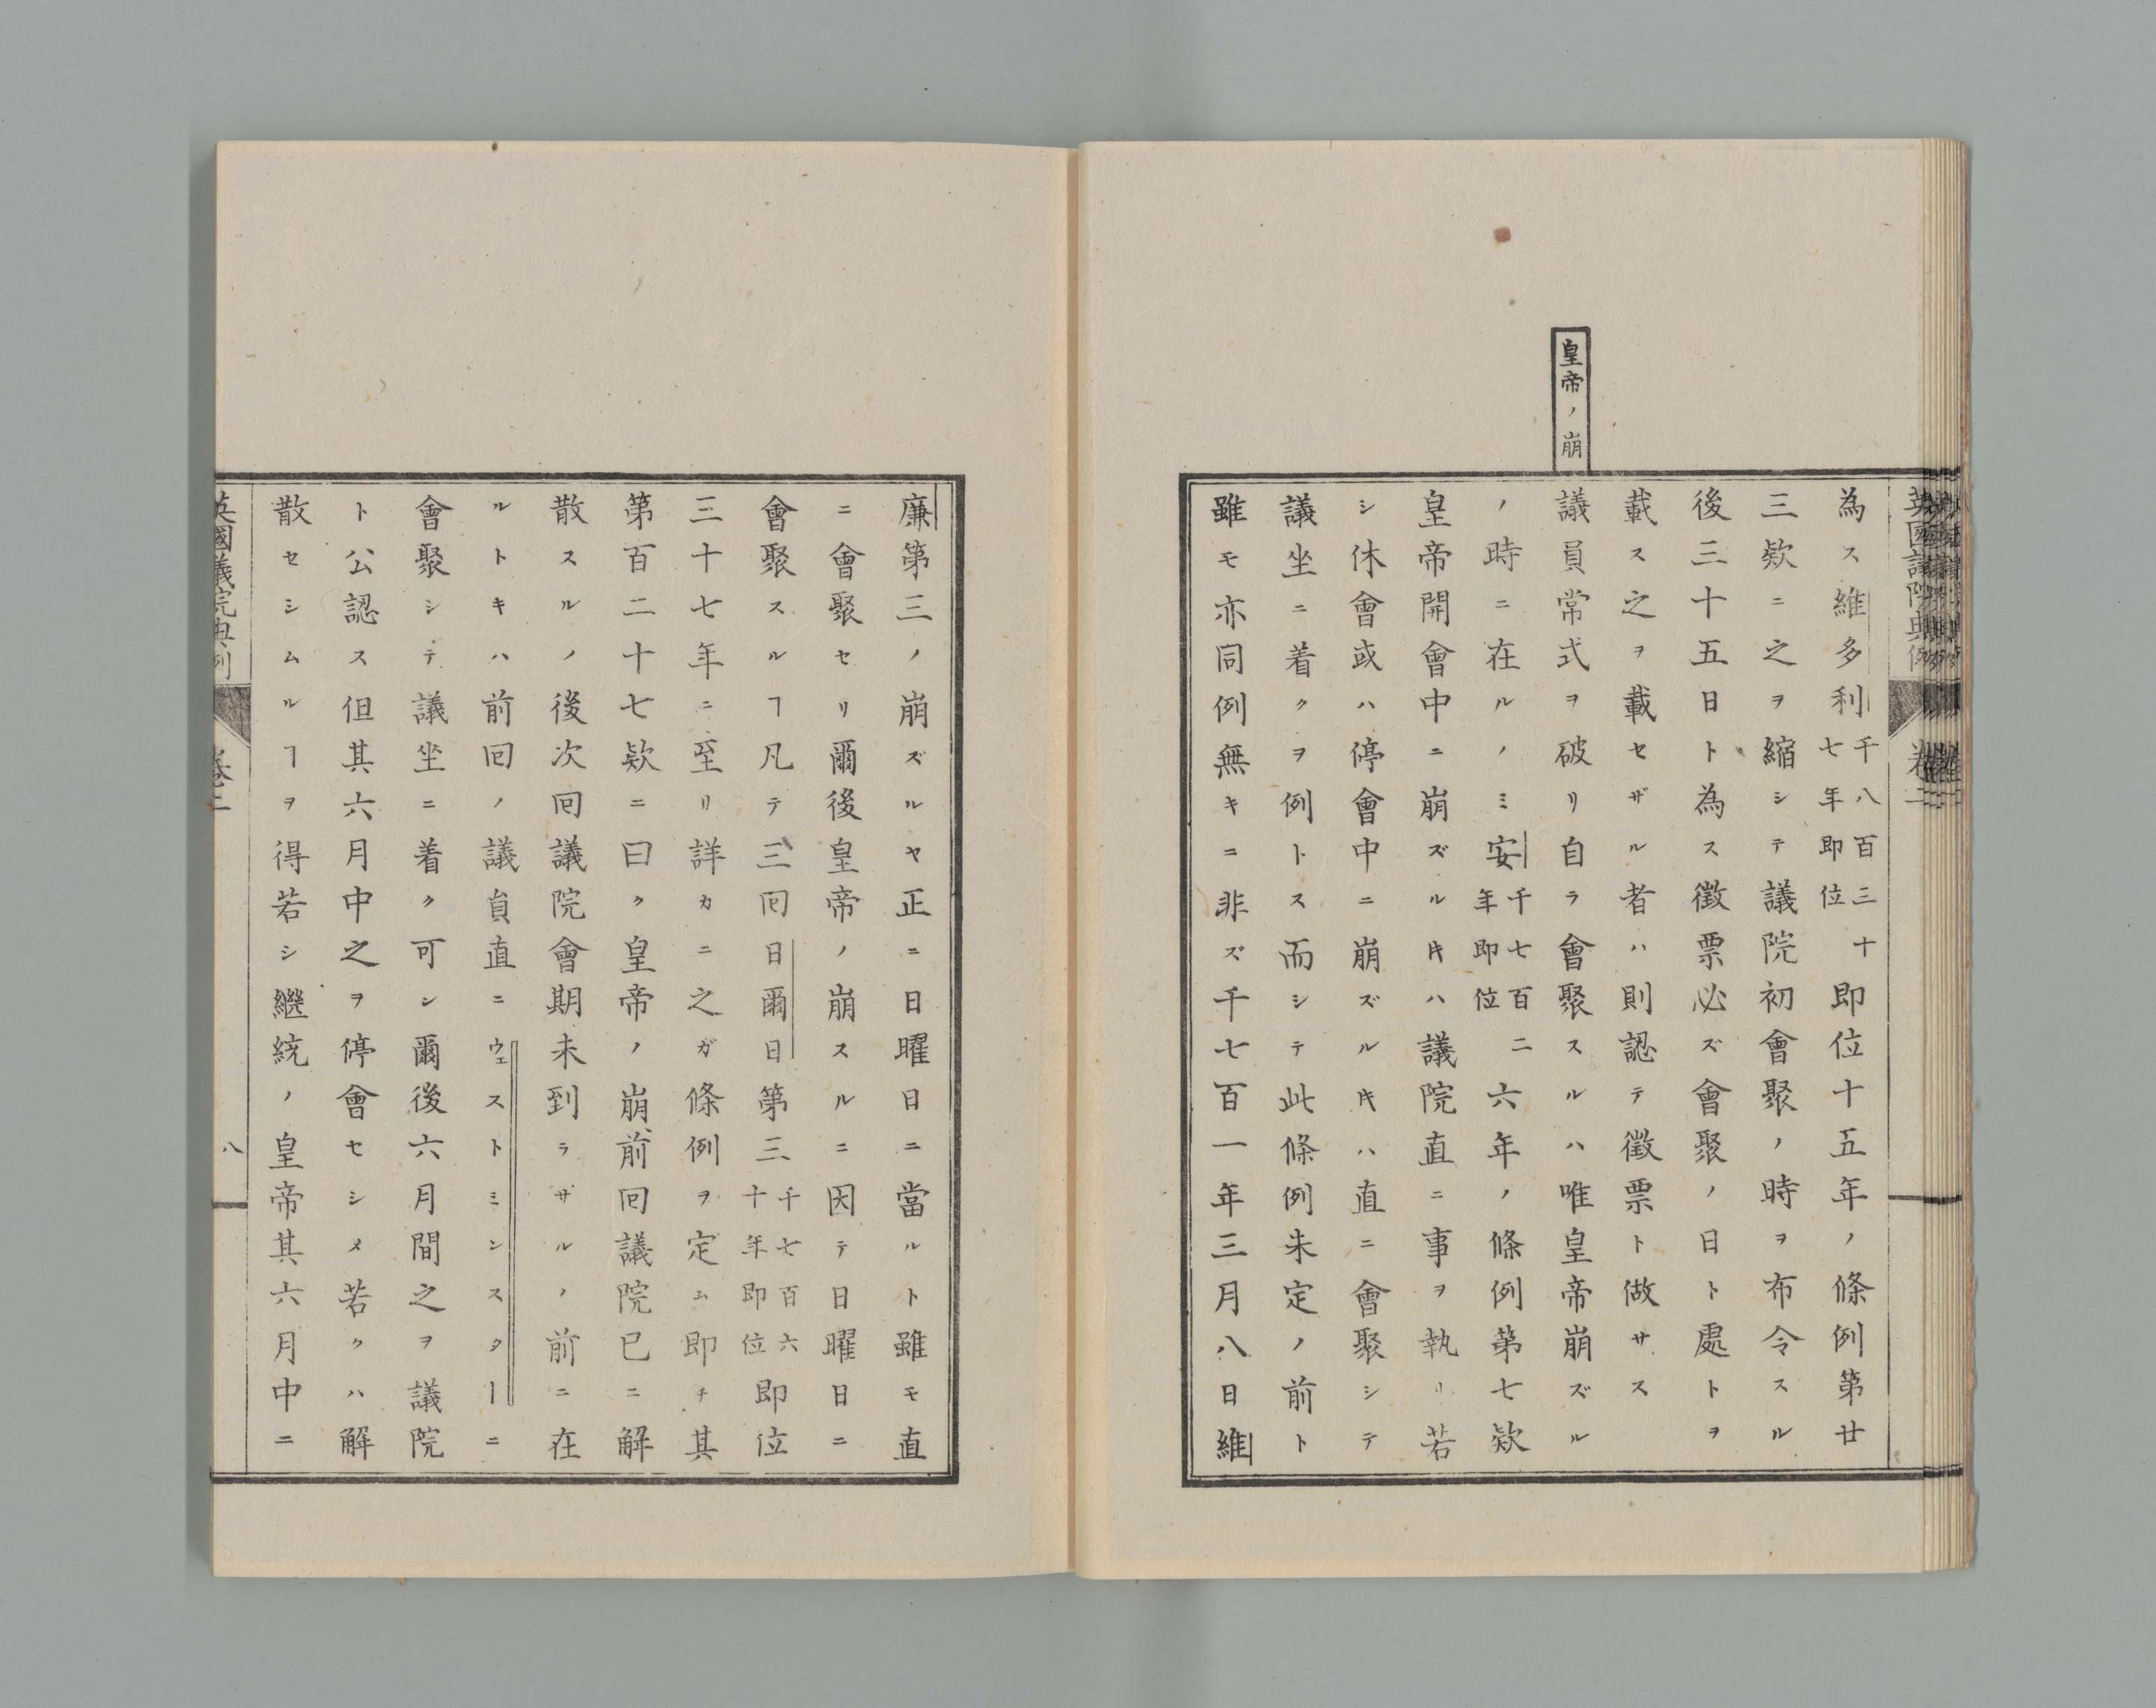 英國議院典例
卷二
皇帝ノ崩
為ス維多利千八百三十七年即位即位十五年ノ條例第廿
三欵ニ之ヲ縮シテ議院初會聚ノ時ヲ布令スル
後三十五日ト為ス徴票必ズ會聚ノ日ト處トヲ
載ス之ヲ載セザル者ハ則認テ徴票ト做サス
議員常式ヲ破リ自ラ會聚スルハ唯皇帝崩ズル
ノ時ニ在ルノミ安千七百二年即位六年ノ條例第七欵
皇帝開會中ニ崩ズル𪜈ハ議院直ニ事ヲ執リ若
シ休會或ハ停會中ニ崩ズル𪜈ハ直ニ會聚シテ
議坐ニ着クヲ例トス而シテ此條例未定ノ前ト
雖モ亦同例無キニ非ズ千七百一年三月八日維
廉第三ノ崩ズルヤ正ニ日曜日ニ當ルト雖モ直
ニ會聚セリ爾後皇帝ノ崩スルニ因テ日曜日ニ
會聚スルヿ凡テ三回日爾日第三千七百六十年即位即位
三十七年ニ至リ詳カニ之ガ條例ヲ定ム即チ其
第百二十七欵ニ曰ク皇帝ノ崩前回議院已ニ解
散スルノ後次回議院會期未到ラザルノ前ニ在
ルトキハ前回ノ議員直ニウェストミンスターニ
會聚シテ議坐ニ着ク可シ爾後六月間之ヲ議院
ト公認ス但其六月中之ヲ停會セシメ若クハ解
散セシムルヿヲ得若シ繼統ノ皇帝其六月中ニ
英國議院典例
卷二
八